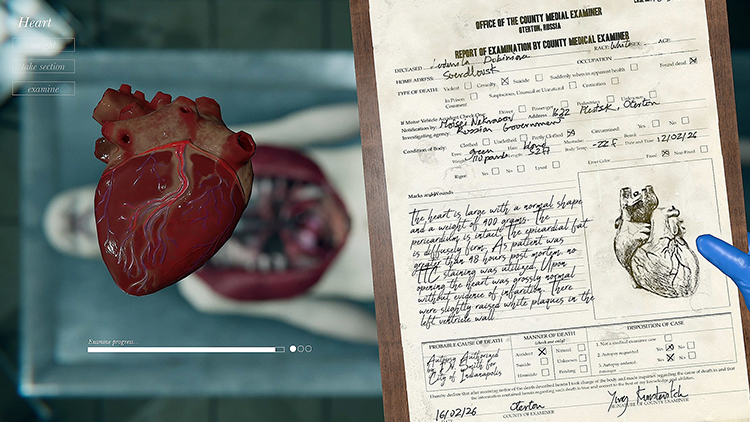 Heart
take section
examine
Examine progress...
OFFICE OF THE COUNTY MEDIAL EXAMINER
OTERTON, RUSSIA
REPORT OF EXAMINATION BY COUNTY MEDICAL EXAMINER
DECEASED
RACE: AGE:
HOME ADRESS: OCCUPATION
TYPE OF DEATH: Violent Casualty Suicide Suddenly when in apparent health Found dead
In Prison Suspicious, Unusual or Unnatural Cremation
Comment
If Motor Vehicle Accident Check One: Driver Passenger Pedestrian Unknown
Notification by: Address 1622 Oterton
Investigating agency: Russian Government
Condition of Body: Clothed Unclothed Partly Clothed Circumcised
Eyes: green Hair: blond Date and Time 12/02/26
110 pounds 5.2ft Body Temp: -22 F
Rigor: Yes No Lysed Liver Color Fixed Non Fixed
Marks and Wounds
The heart is large with a normal shape
and a weight of 400 grams. The
pericardium is intact. The epicardial fat
is diffusely firm. As patient was
greater than 48 hours post mortem, no
TTC staining was utilized. Upon
opening the heart was grossly normal
without evidence of infarction. There
were slightly raised white plaques in the
left ventricle wall
PROBABLE CAUSE OF DEATH MANNER OF DEATH DISPOSITION OF CASE
(check one only)
Autopsy Authorized
by: Smith for
City of Indianapolis
Accident Natural
Suicide Unknown
Homicide Pending
1. Not a medical examiner case
2. Autopsy requested Yes No
3. Autopsy ordered Yes No
I hereby declare that after receiving notice of the death described herein I took charge of the body and made inquiries regarding the cause of death in
the information contained herein regarding such death is true and correct to the best of my knowledge and
16/02/26 Oterton
COUNTY OF EXAMINER SIGNATURE OF COUNTY EXAMINER